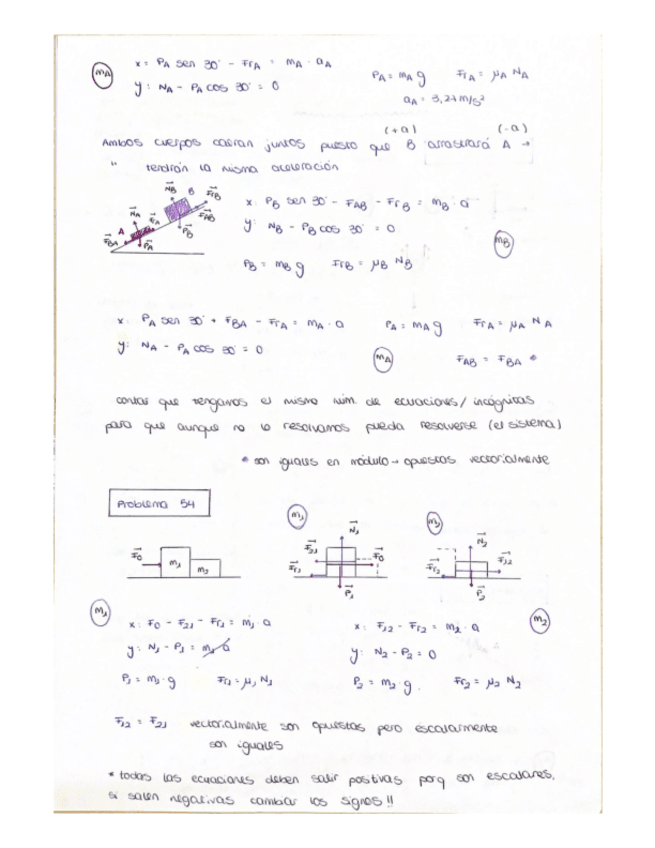 mA
x = PA sen 30° - FrA = mA · aA
y: NA - PA cos 30° = 0
PA = mA g FrA = μA NA
aA = 3,27 m/s²
(+a) (-a)
Ambos cuerpos caerán juntos puesto que B arrastrará A →
" tendrán la misma aceleración
NB B FrB
NA FrA FAB
A PB
FBA PA
x: PB sen 30° - FAB - FrB = mB · a
y: NB - PB cos 30° = 0
mB
PB = mB g FrB = μB NB
x: PA sen 30° + FBA - FrA = mA · a PA = mA g FrA = μA NA
y: NA - PA cos 30° = 0
mA
FAB = FBA *
contar que tengamos el mismo núm. de ecuaciones / incógnitas
para que aunque no lo resolvamos pueda resolverse (el sistema)
* son iguales en módulo → opuestas vectorialmente
Problema 54
F0 m1 m2
m1
N1
F21 F0
Fr1
P1
m2
N2
F12
Fr2
P2
m1
x: F0 - F21 - Fr1 = m1 · a
y: N1 - P1 = m1 a
P1 = m1 · g Fr1 = μ1 N1
x: F12 - Fr2 = m2 · a
m2
y: N2 - P2 = 0
P2 = m2 · g Fr2 = μ2 N2
F12 = F21 vectorialmente son opuestas pero escalarmente
son iguales
* todas las ecuaciones deben salir positivas porq son escalares,
si salen negativas cambiar los signos!!